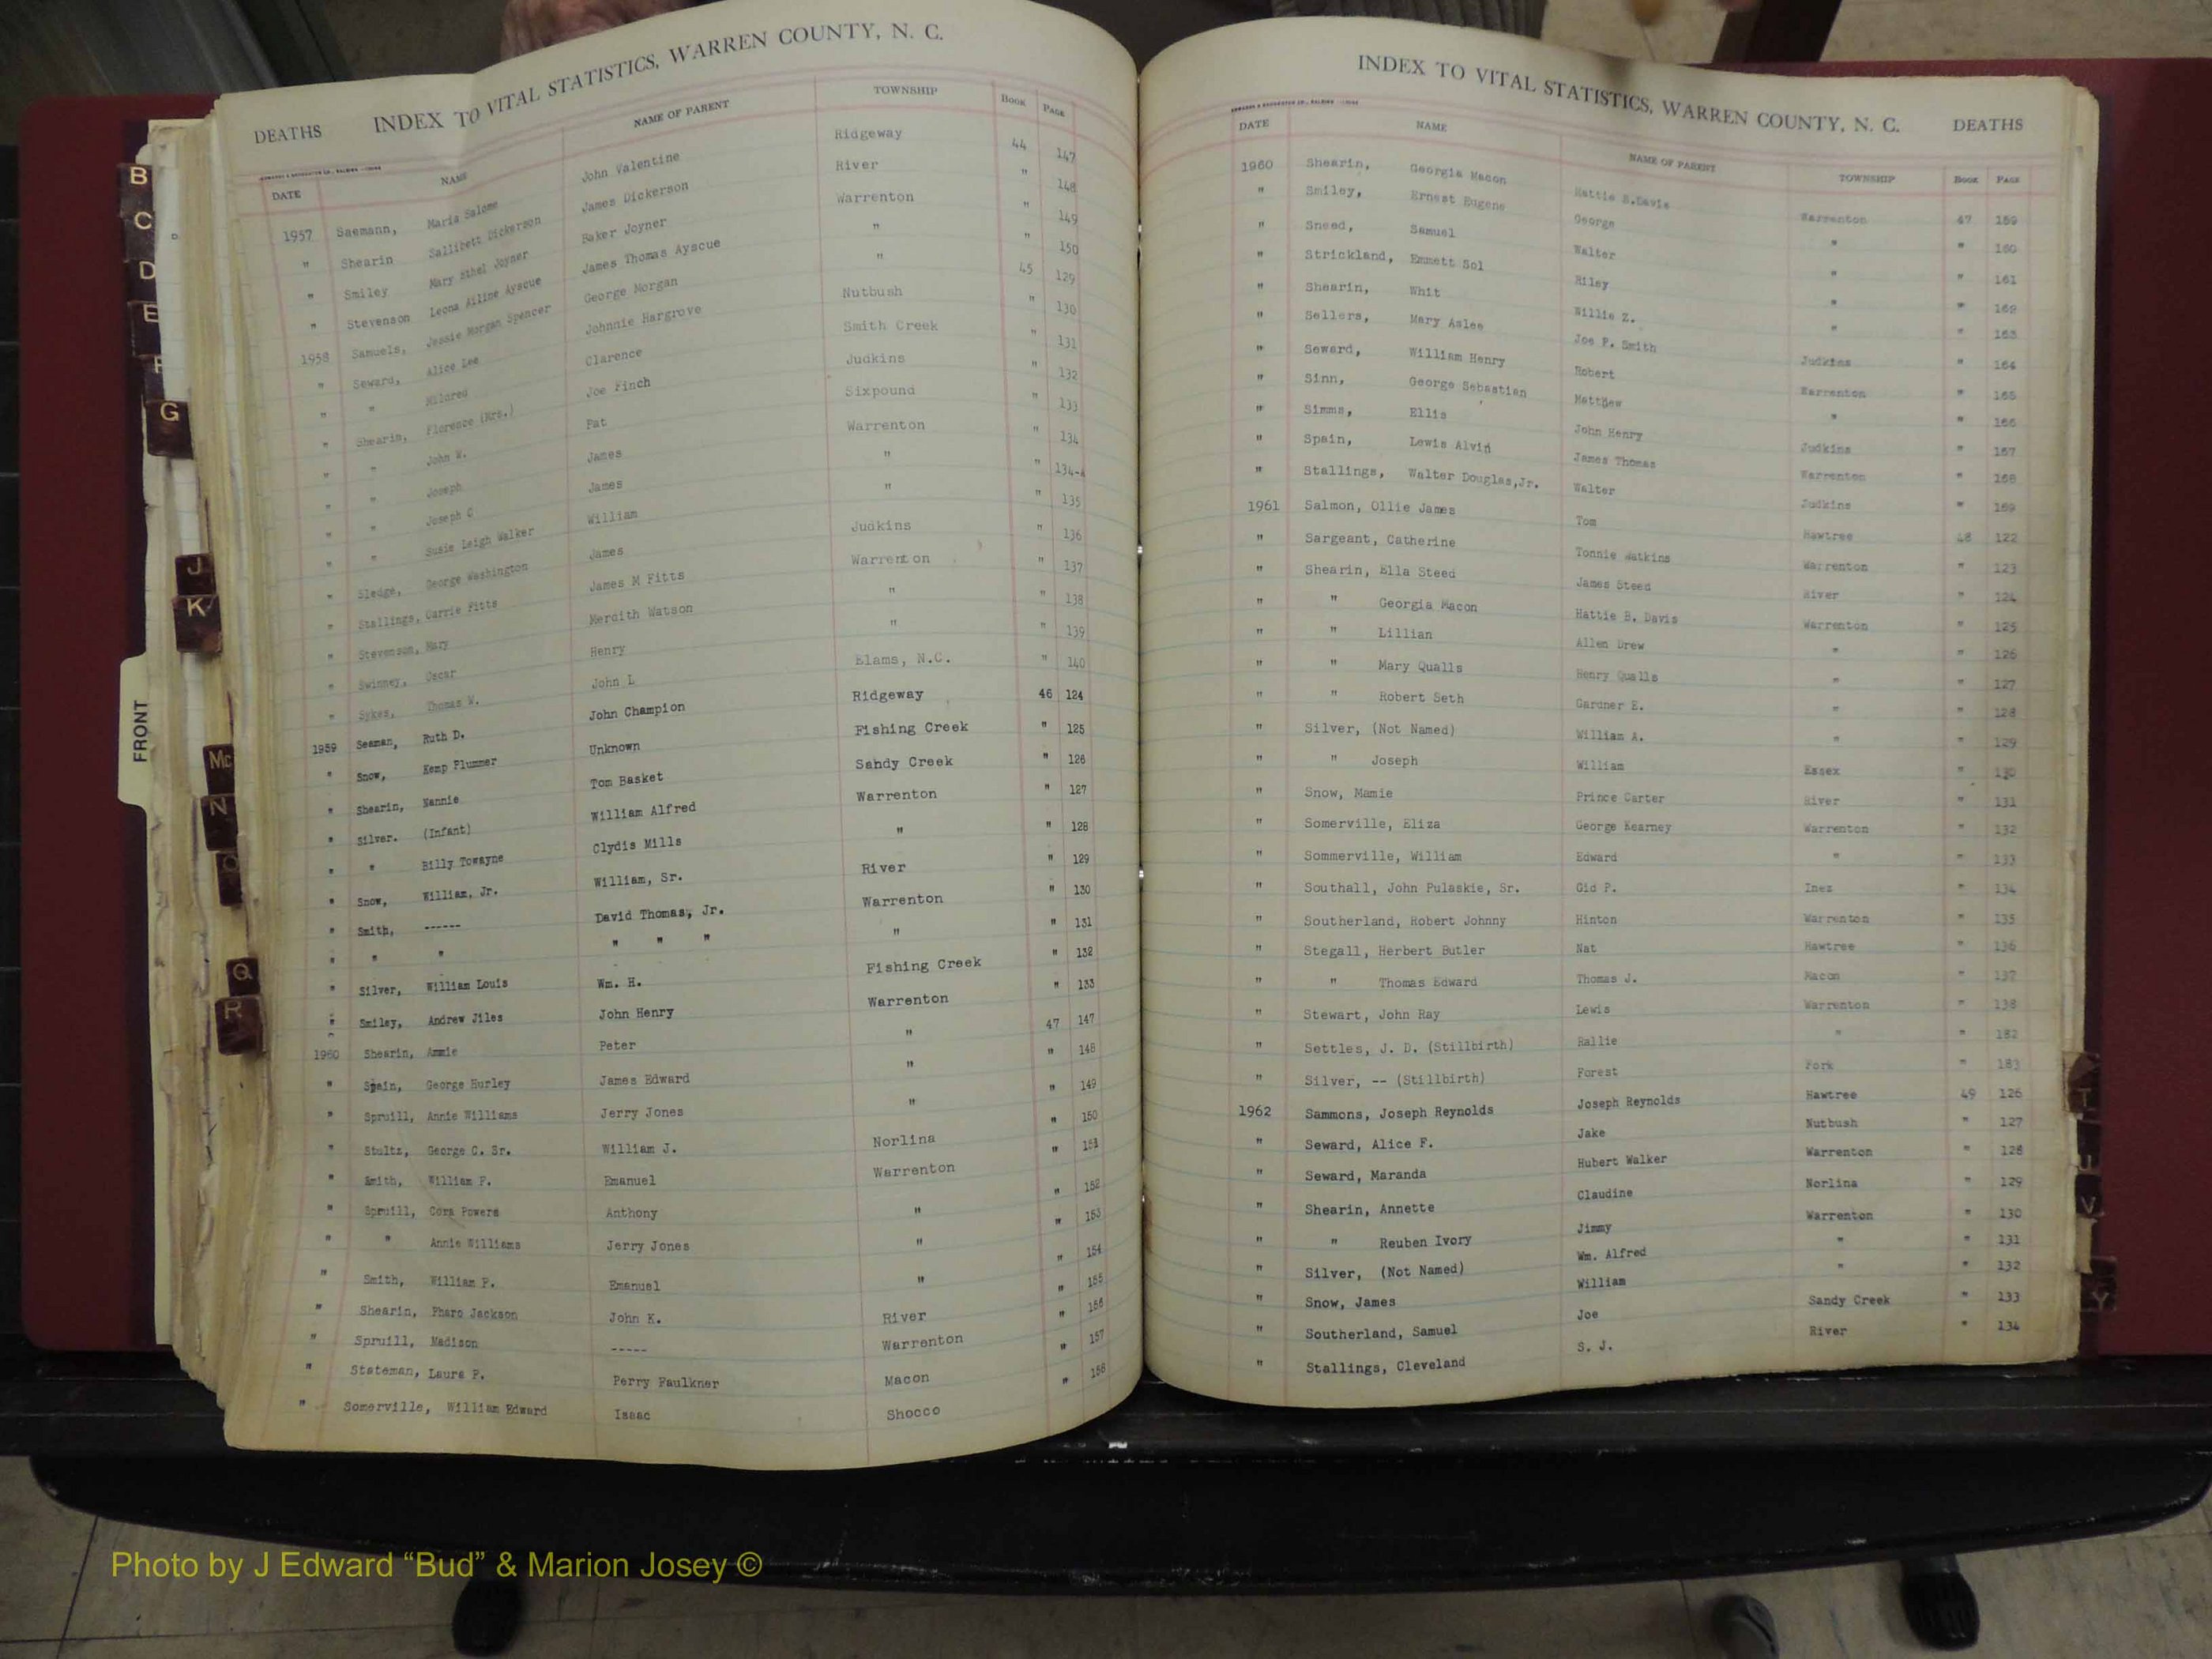 DEATHS INDEX TO VITAL STATISTICS, WARREN COUNTY, N. C.
DATE NAME NAME OF PARENT TOWNSHIP Book Page
1957 Saemann, Maria Salome John Valentine Ridgeway 44 147
" Shearin Sallibett Dickerson James Dickerson River " 148
" Smiley Mary Ethel Joyner Baker Joyner Warrenton " 149
" Stevenson Leona Ailine Ayscue James Thomas Ayscue " " 150
1958 Samuels, Jessie Morgan Spencer George Morgan " 45 129
" Seward, Alice Lee Johnnie Hargrove Nutbush " 130
" " Mildred Clarence Smith Creek " 131
" Shearin, Florence (Mrs.) Joe Finch Judkins " 132
" " John W. Pat Sixpound " 133
" " Joseph James Warrenton " 134
" " Joseph C James " " 134-A
" " Susie Leigh Walker William " " 135
" Sledge, George Washington James Judkins " 136
" Stallings, Carrie Fitts James M Fitts Warrenton " 137
" Stevenson, Mary Merdith Watson " " 138
" Swinney, Oscar Henry " " 139
" Sykes, Thomas W. John L Elams, N.C. " 140
1959 Seaman, Ruth D. John Champion Ridgeway 46 124
" Snow, Kemp Plummer Unknown Fishing Creek " 125
" Shearin, Nannie Tom Basket Sandy Creek " 126
" Silver. (Infant) William Alfred Warrenton " 127
" " Billy Towayne Clydis Mills " " 128
" Snow, William, Jr. William, Sr. River " 129
" Smith, ------ David Thomas, Jr. Warrenton " 130
" " " " " " " " 131
" Silver, William Louis Wm. H. Fishing Creek " 132
" Smiley, Andrew Jiles John Henry Warrenton " 133
1960 Shearin, Ammie Peter " 47 147
" Spain, George Hurley James Edward " " 148
" Spruill, Annie Williams Jerry Jones " " 149
" Stultz, George C. Sr. William J. Norlina " 150
" Smith, William P. Emanuel Warrenton " 151
" Spruill, Cora Powers Anthony " " 152
" " Annie Williams Jerry Jones " " 153
" Smith, William P. Emanuel " " 154
" Shearin, Pharo Jackson John K. River " 155
" Spruill, Madison ----- Warrenton " 156
" Stateman, Laura P. Perry Faulkner Macon " 157
" Somerville, William Edward Isaac Shocco " 158
INDEX TO VITAL STATISTICS, WARREN COUNTY, N. C. DEATHS
DATE NAME NAME OF PARENT TOWNSHIP Book Page
1960 Shearin, Georgia Macon Hattie B.Davis Warrenton 47 159
" Smiley, Ernest Eugene George " " 160
" Sneed, Samuel Walter " " 161
" Strickland, Emmett Sol Riley " " 162
" Shearin, Whit Willie Z. " " 163
" Sellers, Mary Aslee Joe P. Smith Judkins " 164
" Seward, William Henry Robert Warrenton " 165
" Sinn, George Sebastian Matthew " " 166
" Simms, Ellis John Henry Judkins " 167
" Spain, Lewis Alvin James Thomas Warrenton " 168
" Stallings, Walter Douglas,Jr. Walter Judkins " 169
1961 Salmon, Ollie James Tom Hawtree 48 122
" Sargeant, Catherine Tonnie Watkins Warrenton " 123
" Shearin, Ella Steed James Steed River " 124
" " Georgia Macon Hattie B. Davis Warrenton " 125
" " Lillian Allen Drew " " 126
" " Mary Qualls Henry Qualls " " 127
" " Robert Seth Gardner E. " " 128
" Silver, (Not Named) William A. " " 129
" " Joseph William Essex " 130
" Snow, Mamie Prince Carter River " 131
" Somerville, Eliza George Kearney Warrenton " 132
" Sommerville, William Edward " " 133
" Southall, John Pulaskie, Sr. Gid P. Inez " 134
" Southerland, Robert Johnny Hinton Warrenton " 135
" Stegall, Herbert Butler Nat Hawtree " 136
" " Thomas Edward Thomas J. Macon " 137
" Stewart, John Ray Lewis Warrenton " 138
" Settles, J. D. (Stillbirth) Rallie " " 182
" Silver, -- (Stillbirth) Forest Fork " 183
1962 Sammons, Joseph Reynolds Joseph Reynolds Hawtree 49 126
" Seward, Alice F. Jake Nutbush " 127
" Seward, Maranda Hubert Walker Warrenton " 128
" Shearin, Annette Claudine Norlina " 129
" " Reuben Ivory Jimmy Warrenton " 130
" Silver, (Not Named) Wm. Alfred " " 131
" Snow, James William " " 132
" Southerland, Samuel Joe Sandy Creek " 133
" Stallings, Cleveland S. J. River " 134
B
C
D
E
F
G
J
K
FRONT
Mc
N
O
Q
R
T
U
V
Y
Photo by J Edward “Bud” & Marion Josey ©